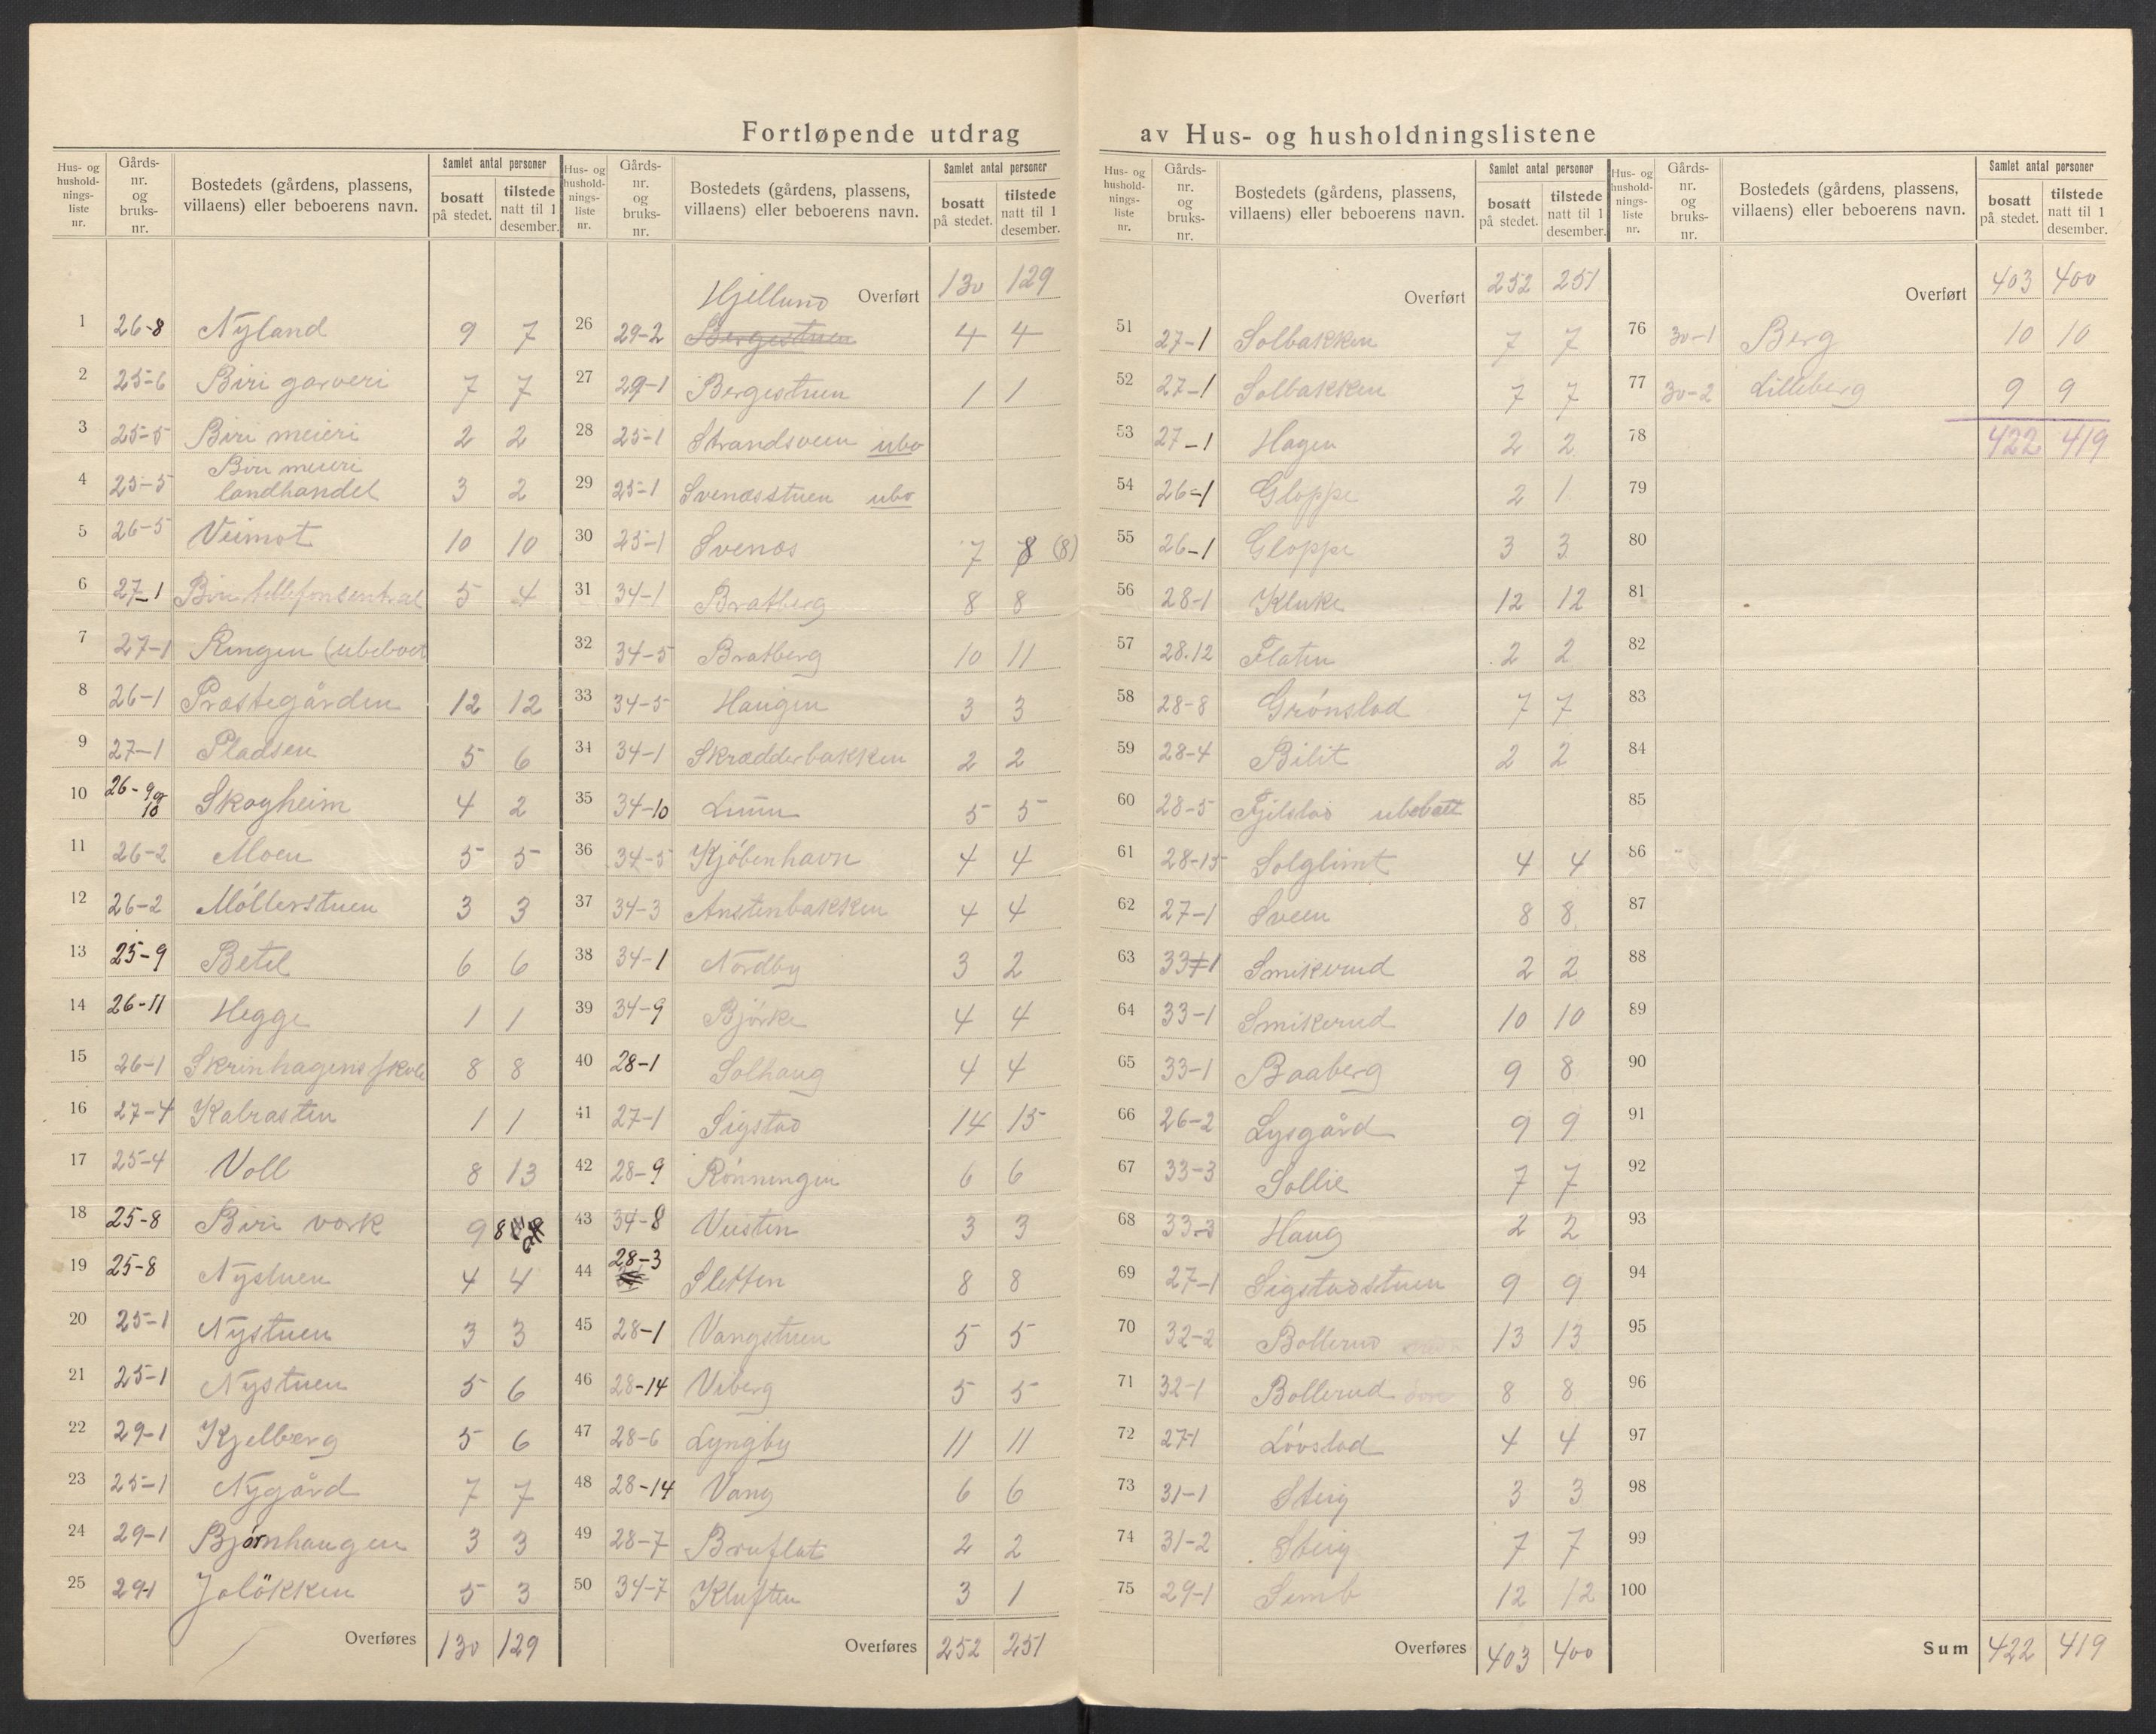 Fortløpende utdrag av Hus- og husholdningslistene
Hus- og husholdnings-liste nr. Gårds-nr. og bruks-nr. Bostedets (gårdens, plassens, villaens) eller beboerens navn. Samlet antal personer bosatt på stedet. tilstede natt til 1 desember.
1 26-8 Nyland 9 7
2 25-6 Biri garveri 7 7
3 25-5 Biri meieri 2 2
4 25-5 Biri meieri landhandel 3 2
5 26-5 Veimot 10 10
6 27-1 Biri tellefonsentral 5 4
7 27-1 Ringen (ubeboet
8 26-1 Præstegården 12 12
9 27-1 Pladsen 5 6
10 26-9 og 10 Skogheim 4 2
11 26-2 Moen 5 5
12 26-2 Møllerstuen 3 3
13 25-9 Betel 6 6
14 26-11 Hegge 1 1
15 26-1 Skrinhagens skole 8 8
16 27-4 Kalrasten 1 1
17 25-4 Voll 8 13
18 25-8 Biri værk 9 8
19 25-8 Nystuen 4 4
20 25-1 Nystuen 3 3
21 25-1 Nystuen 5 6
22 29-1 Kjelberg 5 6
23 25-1 Nygård 7 7
24 29-1 Bjørnhaugen 3 3
25 29-1 Jaløkken 5 3
Overføres 130 129
Hus- og husholdnings-liste nr. Gårds-nr. og bruks-nr. Bostedets (gårdens, plassens, villaens) eller beboerens navn. Samlet antal personer bosatt på stedet. tilstede natt til 1 desember.
Overført 130 129
Hjellund
26 29-2 Bergestuen 4 4
27 29-1 Bergestuen 1 1
28 25-1 Strandsveen ubo
29 25-1 Svenæsstuen ubo
30 25-1 Svenæs 7 8 (8)
31 34-1 Bratberg 8 8
32 34-5 Bratberg 10 11
33 34-5 Haugen 3 3
34 34-1 Skrædderbakken 2 2
35 34-10 5 5
36 34-5 Kjøbenhavn 4 4
37 34-3 Anstenbakken 4 4
38 34-1 Nordby 3 2
39 34-9 Bjørke 4 4
40 28-1 Solhaug 4 4
41 27-1 Sigstad 14 15
42 28-9 Rønningen 6 6
43 34-8 Veisten 3 3
44 28-3 Sletten 8 8
45 28-1 Vangstuen 5 5
46 28-14 Viberg 5 5
47 28-6 Lyngby 11 11
48 28-14 Vang 6 6
49 28-7 Bruflat 2 2
50 34-7 Kluften 3 1
Overføres 252 251
Hus- og husholdnings-liste nr. Gårds-nr. og bruks-nr. Bostedets (gårdens, plassens, villaens) eller beboerens navn. Samlet antal personer bosatt på stedet. tilstede natt til 1 desember.
Overført 252 251
51 27-1 Solbakken 7 7
52 27-1 Solbakken 7 7
53 27-1 Hagen 2 2
54 26-1 Gloppe 2 1
55 26-1 Gloppe 3 3
56 28-1 Kluke 12 12
57 28.12 Flaten 2 2
58 28-8 Grønslod 7 7
59 28-4 Bilit 2 2
60 28-5 Fjelstad ubebott
61 28-15 Solglimt 4 4
62 27-1 Sveen 8 8
63 33-1 Smikerud 2 2
64 33-1 Smikerud 10 10
65 33-1 Baaberg 9 8
66 26-2 Lysgård 9 9
67 33-3 Sollie 7 7
68 33-3 Haug 2 2
69 27-1 Sigstadstuen 9 9
70 32-2 Bollerud 13 13
71 32-1 Bollerud 8 8
72 27-1 Løvstad 4 4
73 31-1 Steig 3 3
74 31-2 Steig 7 7
75 29-1 Semb 12 12
Overføres 403 400
Hus- og husholdnings-liste nr. Gårds-nr. og bruks-nr. Bostedets (gårdens, plassens, villaens) eller beboerens navn. Samlet antal personer bosatt på stedet. tilstede natt til 1 desember.
Overført 403 400
76 30-1 Berg 10 10
77 30-2 Lilleberg 9 9
78 422 419
79
80
81
82
83
84
85
86
87
88
89
90
91
92
93
94
95
96
97
98
99
100
Sum 422 419